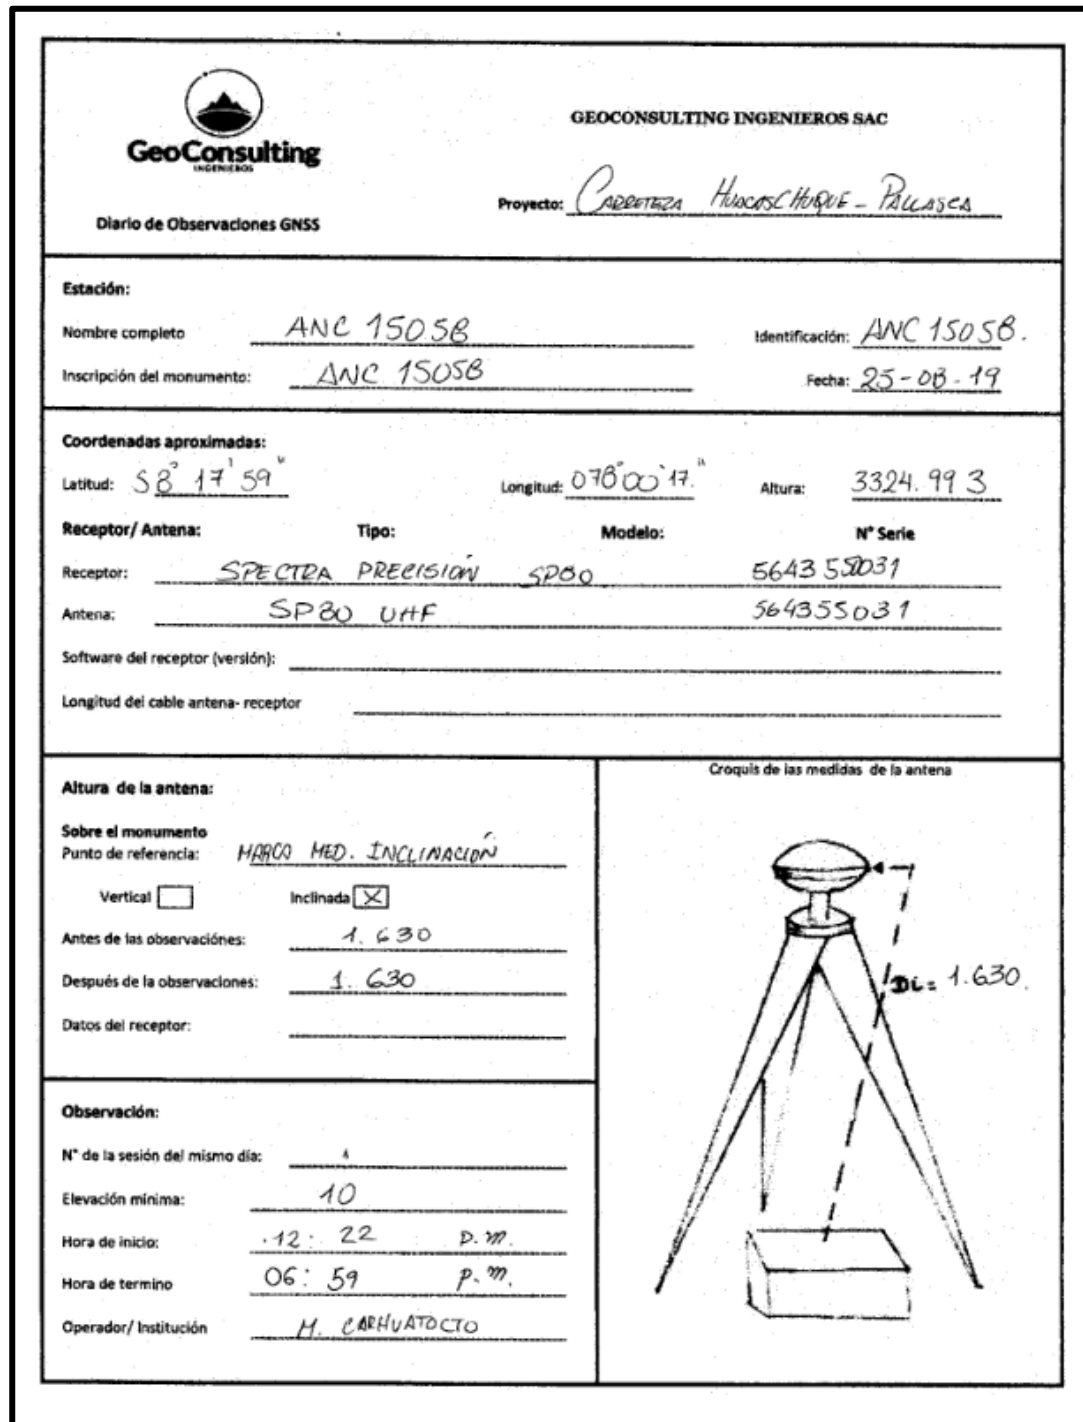 GeoConsulting
INGENIEROS
GEOCONSULTING INGENIEROS SAC
Proyecto: CARRETERA HUACASCHUQUE - PALLASCA
Diario de Observaciones GNSS
Estación:
Nombre completo ANC 15058 Identificación: ANC 15058.
Inscripción del monumento: ANC 15058 Fecha: 25-08-19
Coordenadas aproximadas:
Latitud: S 8° 17' 59" Longitud: 078° 00' 17." Altura: 3324.993
Receptor/ Antena: Tipo: Modelo: N° Serie
Receptor: SPECTRA PRECISIÓN SP80
Antena: SP80 UHF 564355031
Software del receptor (versión):
Longitud del cable antena- receptor
Altura de la antena:
Sobre el monumento
Punto de referencia: MARCA MED. INCLINACIÓN
Vertical Inclinada X
Antes de las observaciónes: 1.630
Después de la observaciones: 1.630
Datos del receptor:
Croquis de las medidas de la antena
Di= 1.630.
Observación:
N° de la sesión del mismo día: 1
Elevación minima: 10
Hora de inicio: 12: 22 p.m.
Hora de termino 06: 59 p.m.
Operador/ Institución M. CARHUATOCTO